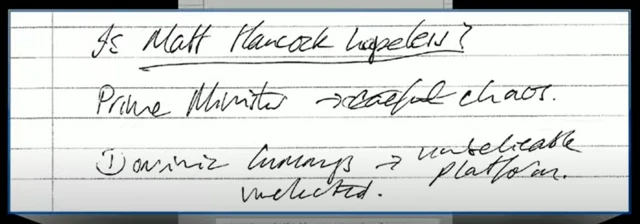 Is Matt Hancock hopeless?
Prime Minister → chaos.
① Dominic Cummings → unbelievable platform.
unelected.